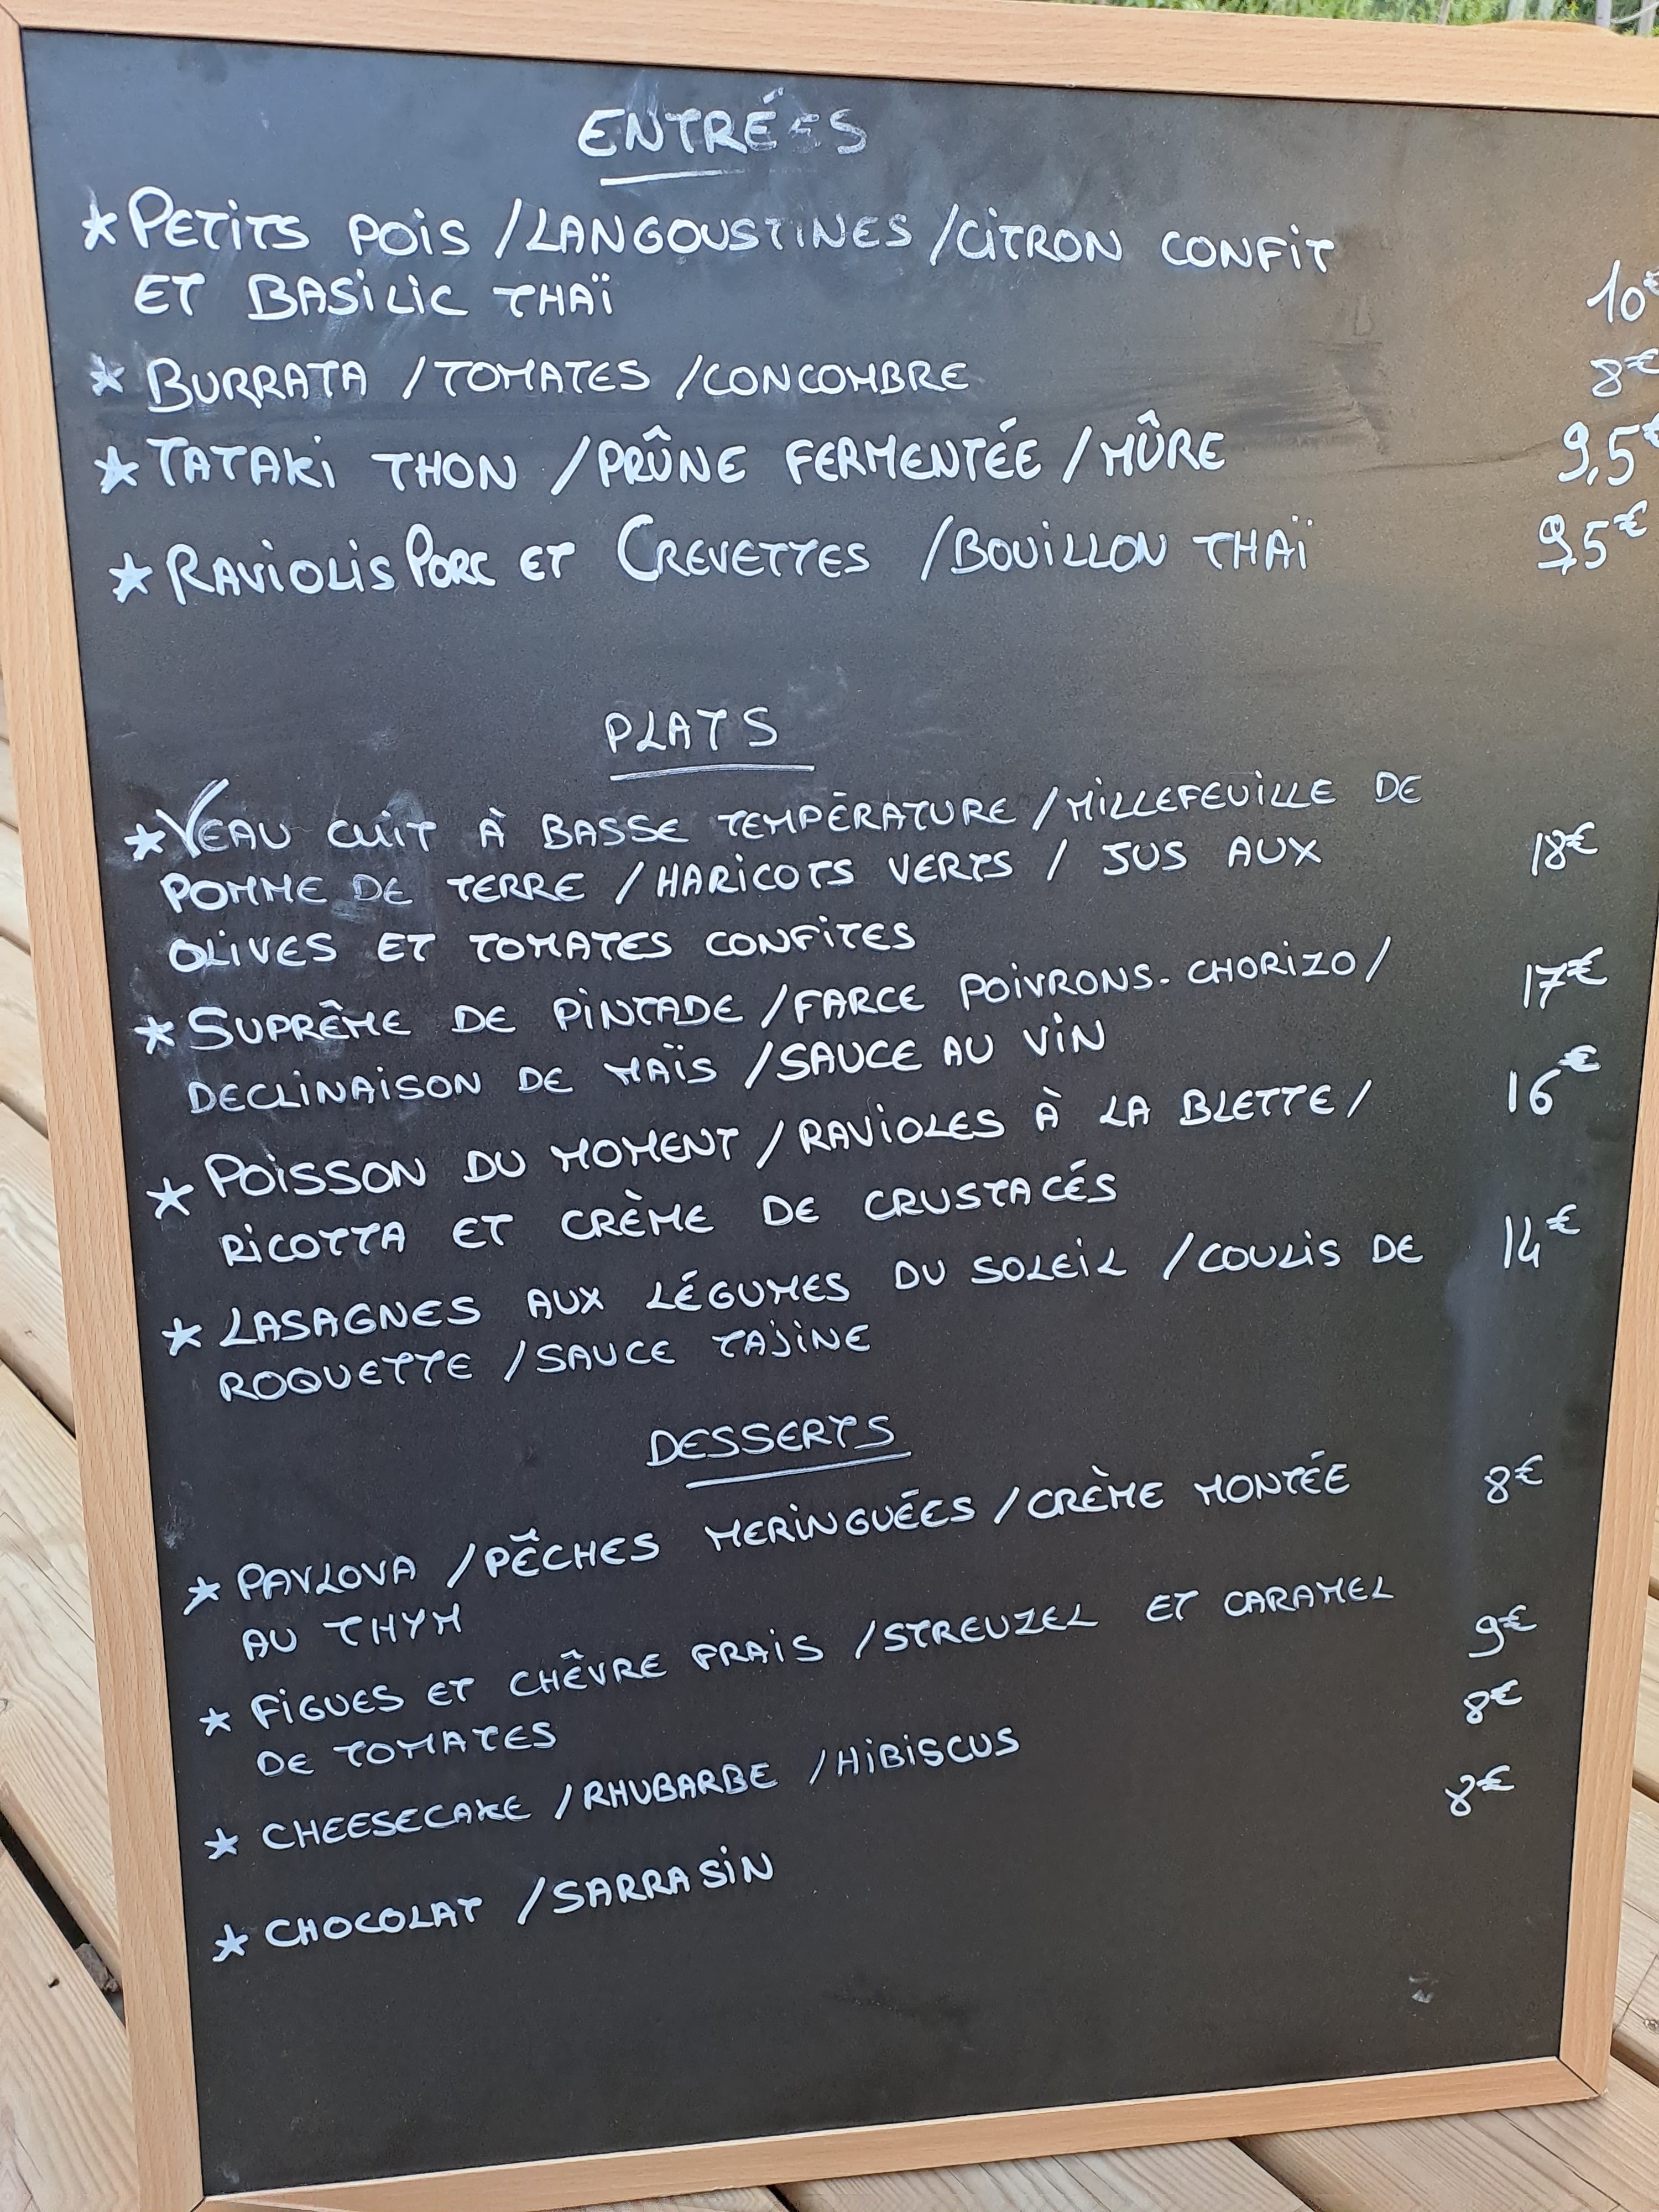 ENTRÉES
★ PETITS POIS / LANGOUSTINES / CITRON CONFIT
ET BASILIC THAÏ 10€
★ BURRATA / TOMATES / CONCOMBRE 8€
★ TATAKI THON / PRÛNE FERMENTÉE / MÛRE 9,5€
★ RAVIOLIS PORC ET CREVETTES / BOUILLON THAÏ 9,5€
PLATS
★ VEAU CUIT À BASSE TEMPÉRATURE / MILLEFEUILLE DE
POMME DE TERRE / HARICOTS VERTS / JUS AUX 18€
OLIVES ET TOMATES CONFITES
★ SUPRÊME DE PINTADE / FARCE POIVRONS-CHORIZO / 17€
DECLINAISON DE MAÏS / SAUCE AU VIN
★ POISSON DU MOMENT / RAVIOLES À LA BLETTE / 16€
RICOTTA ET CRÈME DE CRUSTACÉS
★ LASAGNES AUX LÉGUMES DU SOLEIL / COULIS DE 14€
ROQUETTE / SAUCE TAJINE
DESSERTS
★ PAVLOVA / PÊCHES MERINGUÉES / CRÈME MONTÉE 8€
AU THYM
★ FIGUES ET CHÊVRE FRAIS / STREUZEL ET CARAMEL 9€
DE TOMATES
★ CHEESECAKE / RHUBARBE / HIBISCUS 8€
★ CHOCOLAT / SARRASIN 8€